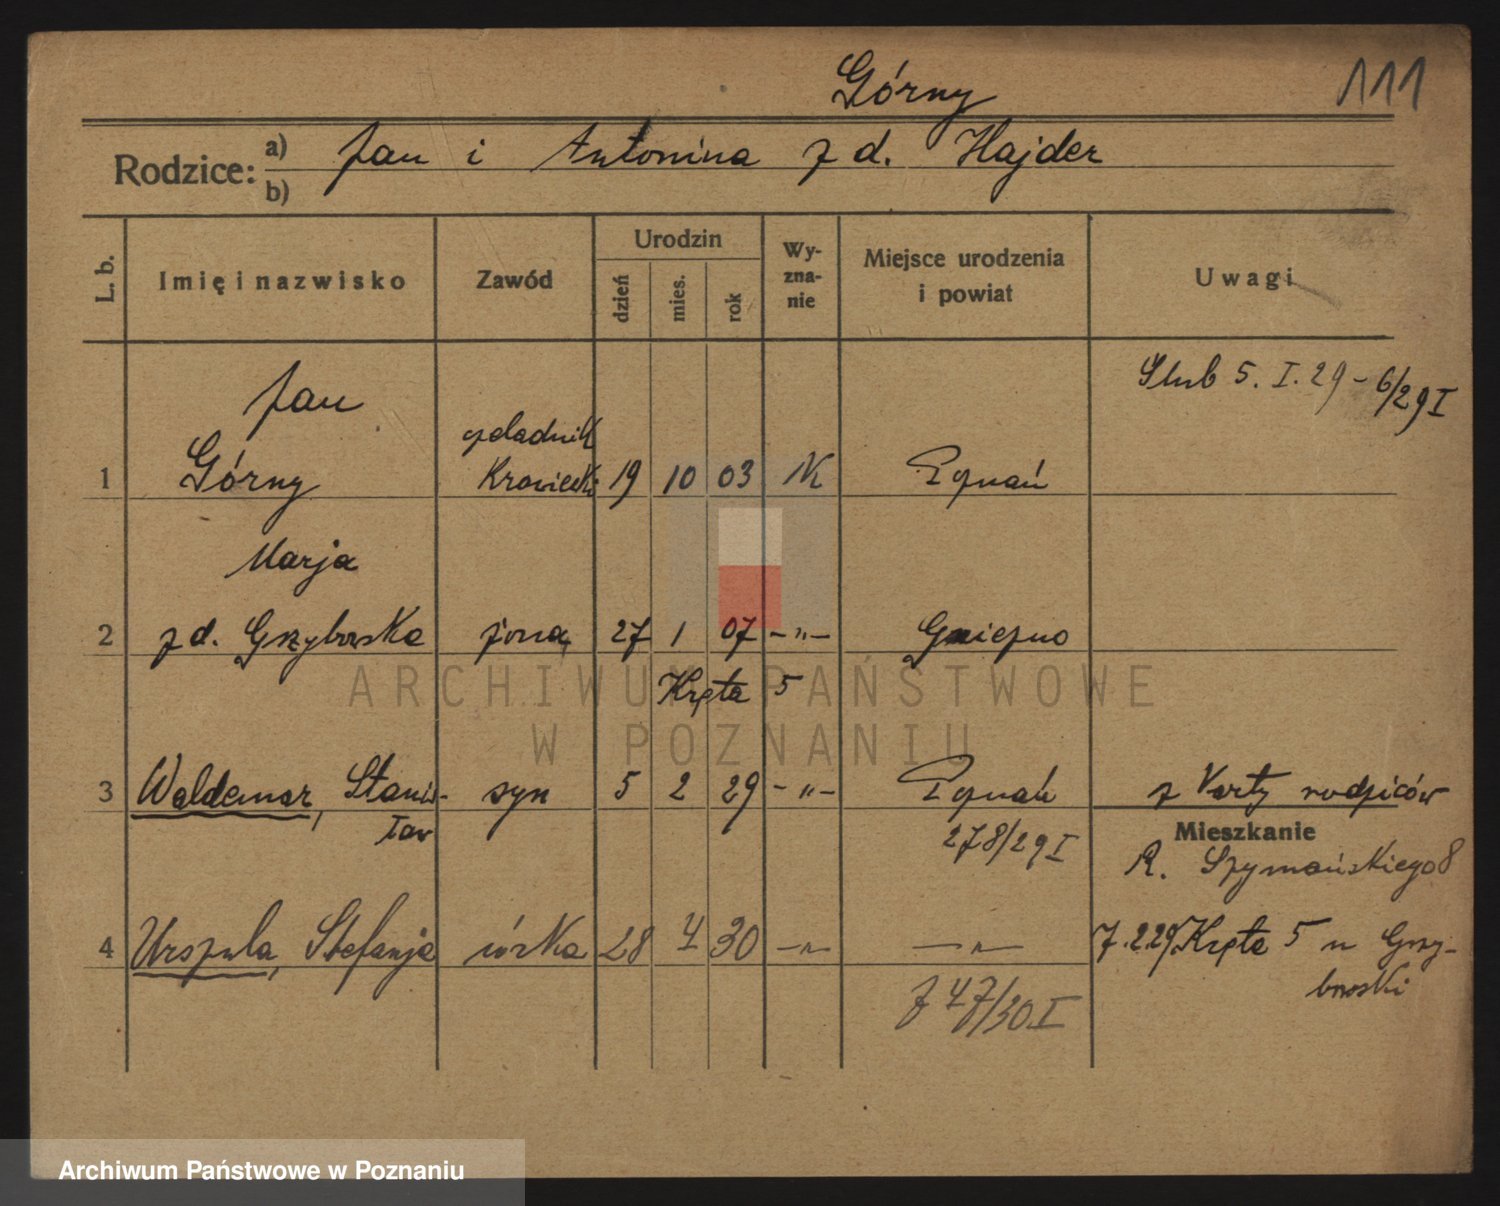 Górny
111
Rodzice: a) Jan i Antonina z d. Hajder
b)
L. b.
Imię i nazwisko
Zawód
Urodzin
dzień
mies.
rok
Wy-
zna-
nie
Miejsce urodzenia
i powiat
Uwagi
Ślub 5. I. 29 - 6/29 I
Jan
czeladnik
1 Górny krawiecki 19 10 03 rk Poznań
Marja
2 z d. Grzybowska żona 27 1 07 - " - Gniezno
Kręta 5
ARCHIWUM PAŃSTWOWE
W POZNANIU
3 Waldemar, Stanis- syn 5 2 29 - " - Poznań z Karty rodziców
ław 278/29 I
Mieszkanie
R. Szymańskiego 8
4 Urszula, Stefanja córka 28 4 30 - " - - " - 7.2.29 Kręta 5 u Grzy-
bowski
747/30 I
Archiwum Państwowe w Poznaniu